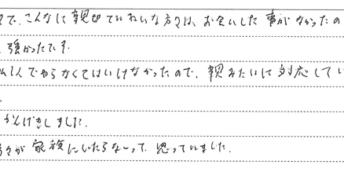 で、こんなに親切でていねいな方々は、お会いした事がなかったの
、強かったです
んでやらなくてはいけなかったので、親みたいに対応してい
かんげきしました。
々が家族にいたらなーって、思っていました。